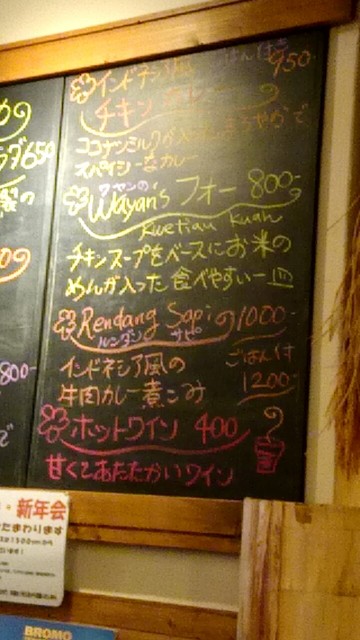 インドネシア風 ごはん付き 950
チキンカレー
ココナッツミルクが入ったまろやかで
スパイシーなカレー
ワヤンの
Wayan's フォー 800-
Kwetiau Kuah
チキンスープをベースにお米の
めんが入った食べやすい一皿
Rendang Sapi 1000-
ルンダン サピ
インドネシア風の ごはん付
牛肉カレー煮こみ 1200-
ホットワイン 400
甘くてあたたかいワイン
650
製の
800-
で
・新年会
BROMO